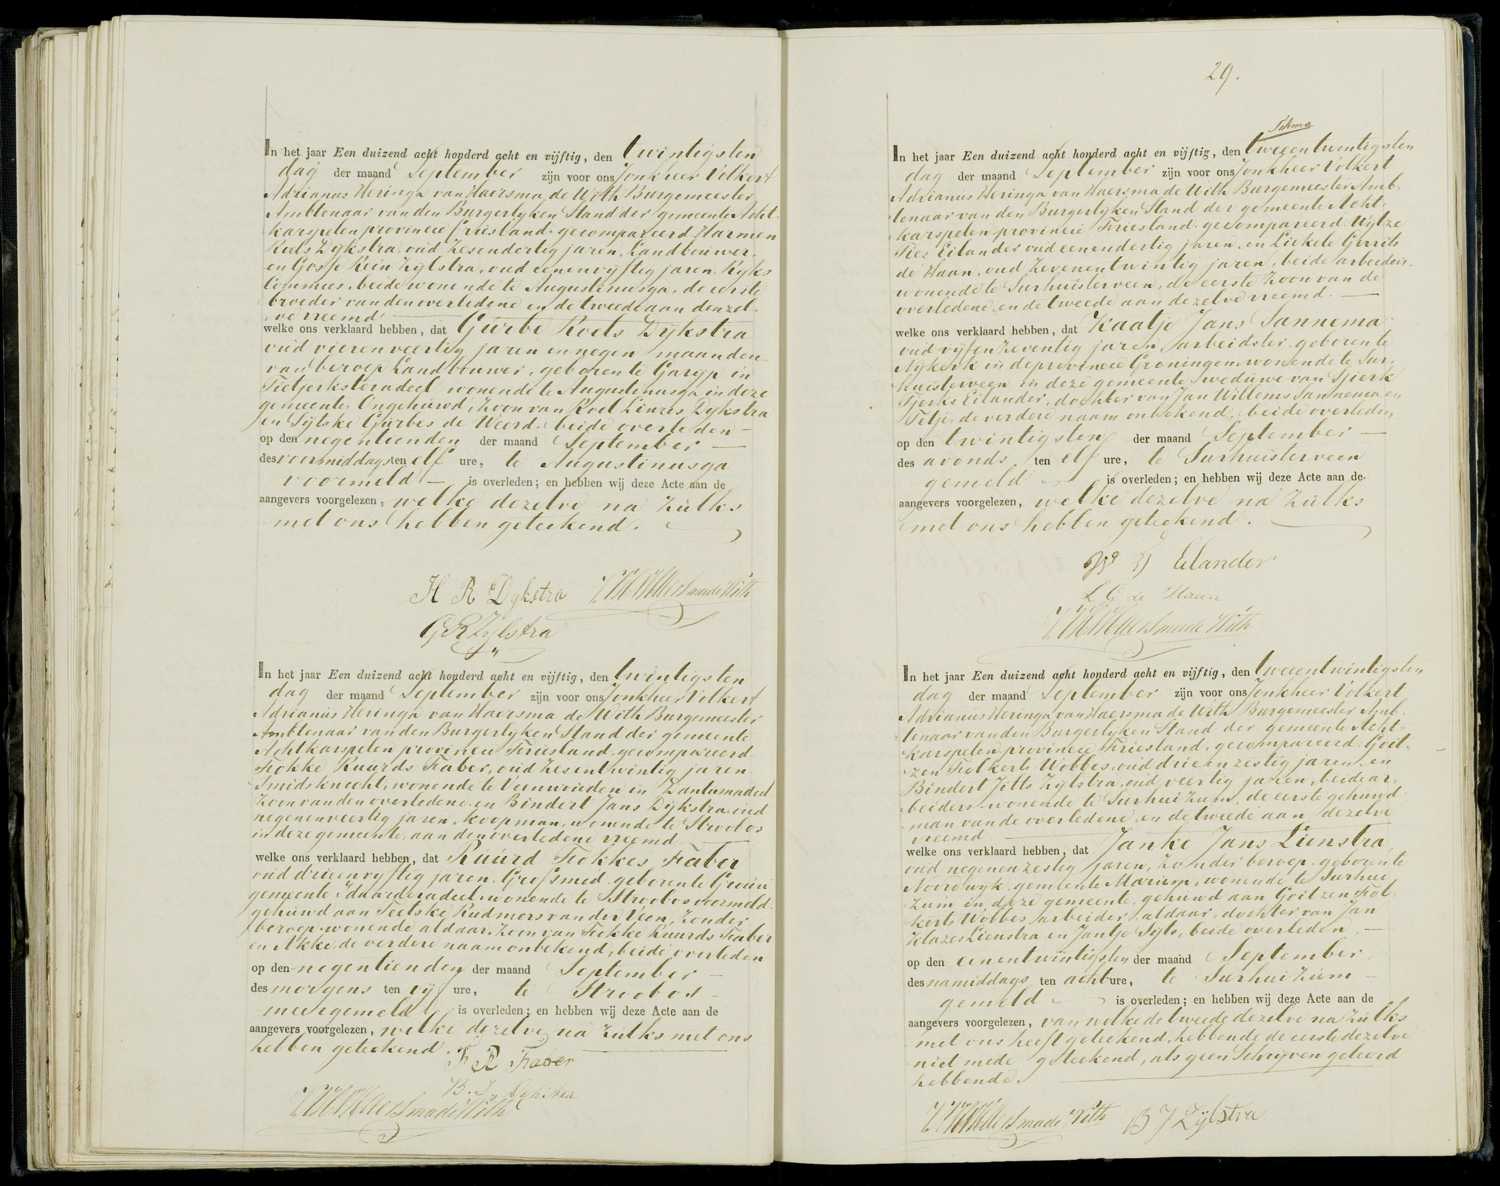 In het jaar Een duizend acht honderd acht en vijftig, den twintigsten
dag der maand September zijn voor ons Jonkheer Volkert
Adrianus Heringa van Haersma de With Burgemeester
Ambtenaar van den Burgerlyken Stand der gemeente Acht-
karspelen provincie Friesland gecompareerd Harmen
Roels Dykstra, oud zesendertig jaren, Landbouwer,
en Gosse Rein Zylstra, oud eenenvyftig jaren, Ryks
Commies, beide wonende te Augustinusga, de eerste
broeder van den overledene en de tweede aan denzel-
ve vreemd
welke ons verklaard hebben, dat Gurbe Roels Dykstra
oud vierenveertig jaren en negen maanden
van beroep Landbouwer, geboren te Garyp in
Tietjerksteradeel wonende te Augustinusga in deze
gemeente, Ongehuwd, Zoon van Roel Dykstra
en Sytske Gurbes de Weerd, beide overleden
op den negentienden der maand September
des voormiddags ten elf ure, te Augustinusga
voormeld is overleden; en hebben wij deze Acte aan de
aangevers voorgelezen, welke dezelve na zulks
met ons hebben geteekend.
H R Dykstra
G R Zylstra
In het jaar Een duizend acht honderd acht en vijftig, den twintigsten
dag der maand September zijn voor ons Jonkheer Volkert
Adrianus Heringa van Haersma de With Burgemeester
Ambtenaar van den Burgerlyken Stand der gemeente
Achtkarspelen provincie Friesland gecompareerd
Fokke Ruurds Faber, oud zesentwintig jaren
Smidsknecht, wonende te Veenwouden in Dantumadeel
Zoon van den overledene en Bindert Jans Dykstra oud
negenenveertig jaren, koopman, wonende te Stroobos
in deze gemeente, aan den overledene vreemd
welke ons verklaard hebben, dat Ruurd Fokkes Faber
oud drieenvyftig jaren, Grofsmid, geboren te Grouw
gemeente Idaarderadeel, wonende te Stroobos voormeld
gehuwd aan Feetske Rudmers van der Veen, Zonder
beroep wonende aldaar, Zoon van Fokke Ruurds Faber
en Akke de verdere naam onbekend, beide overleden
op den negentienden der maand September
des morgens ten vyf ure, te Stroobos
meergemeld is overleden; en hebben wij deze Acte aan de
aangevers voorgelezen, welke dezelve na zulks met ons
hebben geteekend.
F R Faber
B. J. Dykstra
29.
In het jaar Een duizend acht honderd acht en vijftig, den tweeentwintigsten
dag der maand September zijn voor ons Jonkheer Volkert
Adrianus Heringa van Haersma de With Burgemeester Amb-
tenaar van den Burgerlyken Stand der gemeente Acht-
karspelen provincie Friesland gecompareerd Wytze
Eilander oud eenendertig jaren, en Liekele Gerrits
de Haan, oud zevenentwintig jaren, beide arbeiders
wonende te Surhuisterveen, de eerste Zoon van de
overledene en de tweede aan dezelve vreemd.
welke ons verklaard hebben, dat Kaatje Jans Sannema
oud vyfenzeventig jaren, arbeidster, geboren te
Nykerk in de provincie Groningen, wonende te Sur-
huisterveen in deze gemeente, weduwe van Tjeerk
Tjerks Eilander, dochter van Jan Willems Sannema en
Tetje, de verdere naam onbekend, beide overleden
op den twintigsten der maand September
des avonds ten elf ure, te Surhuisterveen
gemeld is overleden; en hebben wij deze Acte aan de
aangevers voorgelezen, welke dezelve na zulks
met ons hebben geteekend.
Eilander
L G de Haan
In het jaar Een duizend acht honderd acht en vijftig, den tweeentwintigsten
dag der maand September zijn voor ons Jonkheer Volkert
Adrianus Heringa van Haersma de With Burgemeester Amb-
tenaar van den Burgerlyken Stand der gemeente Acht-
karspelen provincie Friesland, gecompareerd Goit-
zen Folkerts Wobbes, oud drieenzestig jaren, en
Bindert Zylstra, oud veertig jaren, beide ar-
beiders wonende te Surhuizum, de eerste gehuwd
man van de overledene en de tweede aan dezelve
vreemd
welke ons verklaard hebben, dat Janke Jans Lienstra,
oud negenenzestig jaren, Zonder beroep geboren te
Noordwyk, gemeente Marum, wonende te Surhui-
zum in deze gemeente, gehuwd aan Goitzen Fol-
kerts Wobbes, arbeider, aldaar, dochter van Jan
Klazes Lienstra en Jantje Syts, beide overleden
op den eenentwintigsten der maand September
des namiddags ten acht ure, te Surhuizum
gemeld is overleden; en hebben wij deze Acte aan de
aangevers voorgelezen, van welke de tweede dezelve na zulks
met ons heeft geteekend, hebbende de eerste dezelve
niet mede geteekend, als geen Schryven geleerd
hebbende.
B J Zylstra